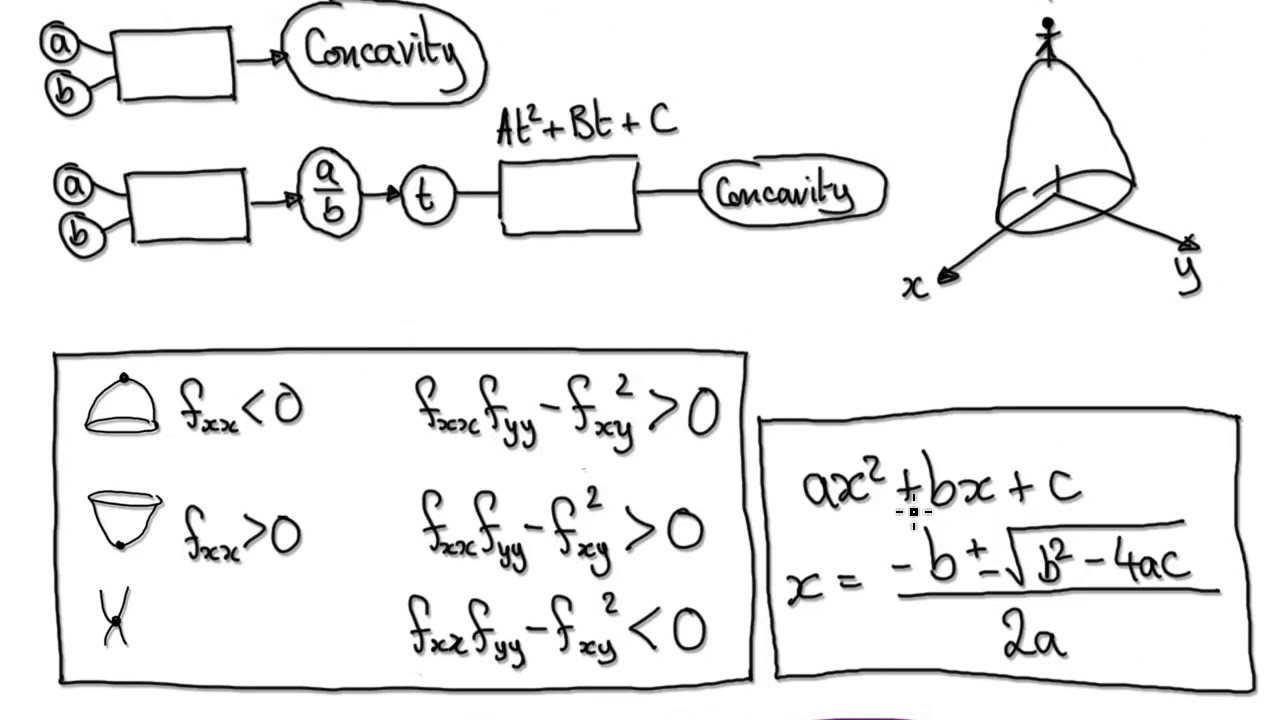 a
b
Concavity
At² + Bt + C
a
b
a/b
t
Concavity
x
y
fₓₓ < 0 fₓₓf_yy − f_xy² > 0
fₓₓ > 0 fₓₓf_yy − f_xy² > 0
fₓₓf_yy − f_xy² < 0
ax² + bx + c
x = (−b ± √(b² − 4ac)) / 2a